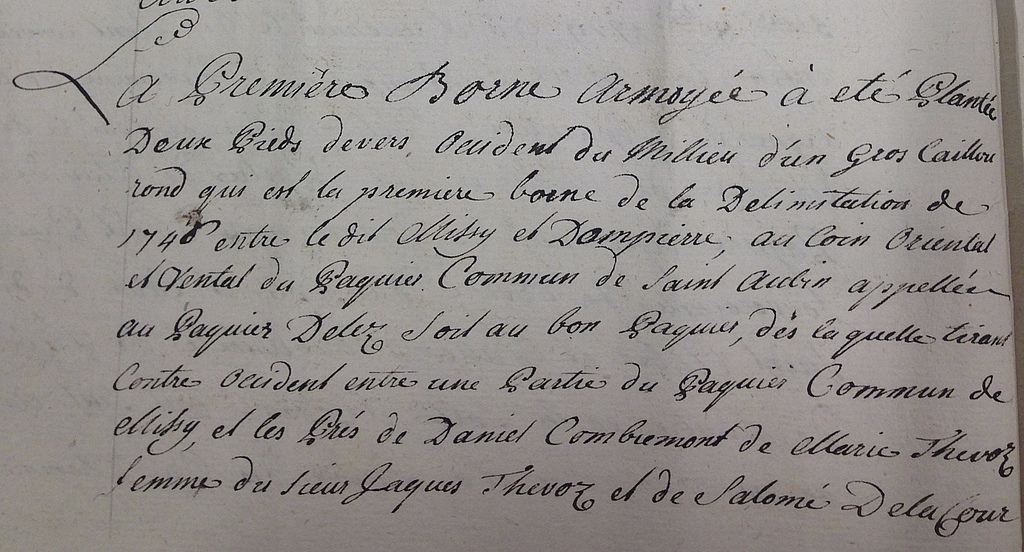 La Première Borne Armoyée à eté Plantée
Deux Pieds devers Occident du Millieu d'un Gros Caillou
rond qui est la premiere borne de la Delimitation de
1748 entre le dit Missy et Dompierre, au Coin Oriental
et Vental du Paquier Commun de Saint Aubin appellée
au Paquier Delez soit au bon Paquier, dés laquelle tirant
Contre Occident entre une Partie du Paquier Commun de
Missy, et les Prés de Daniel Combremont de Marie Thevoz
femme du sieur Jaques Thevoz et de Salomé Delacour